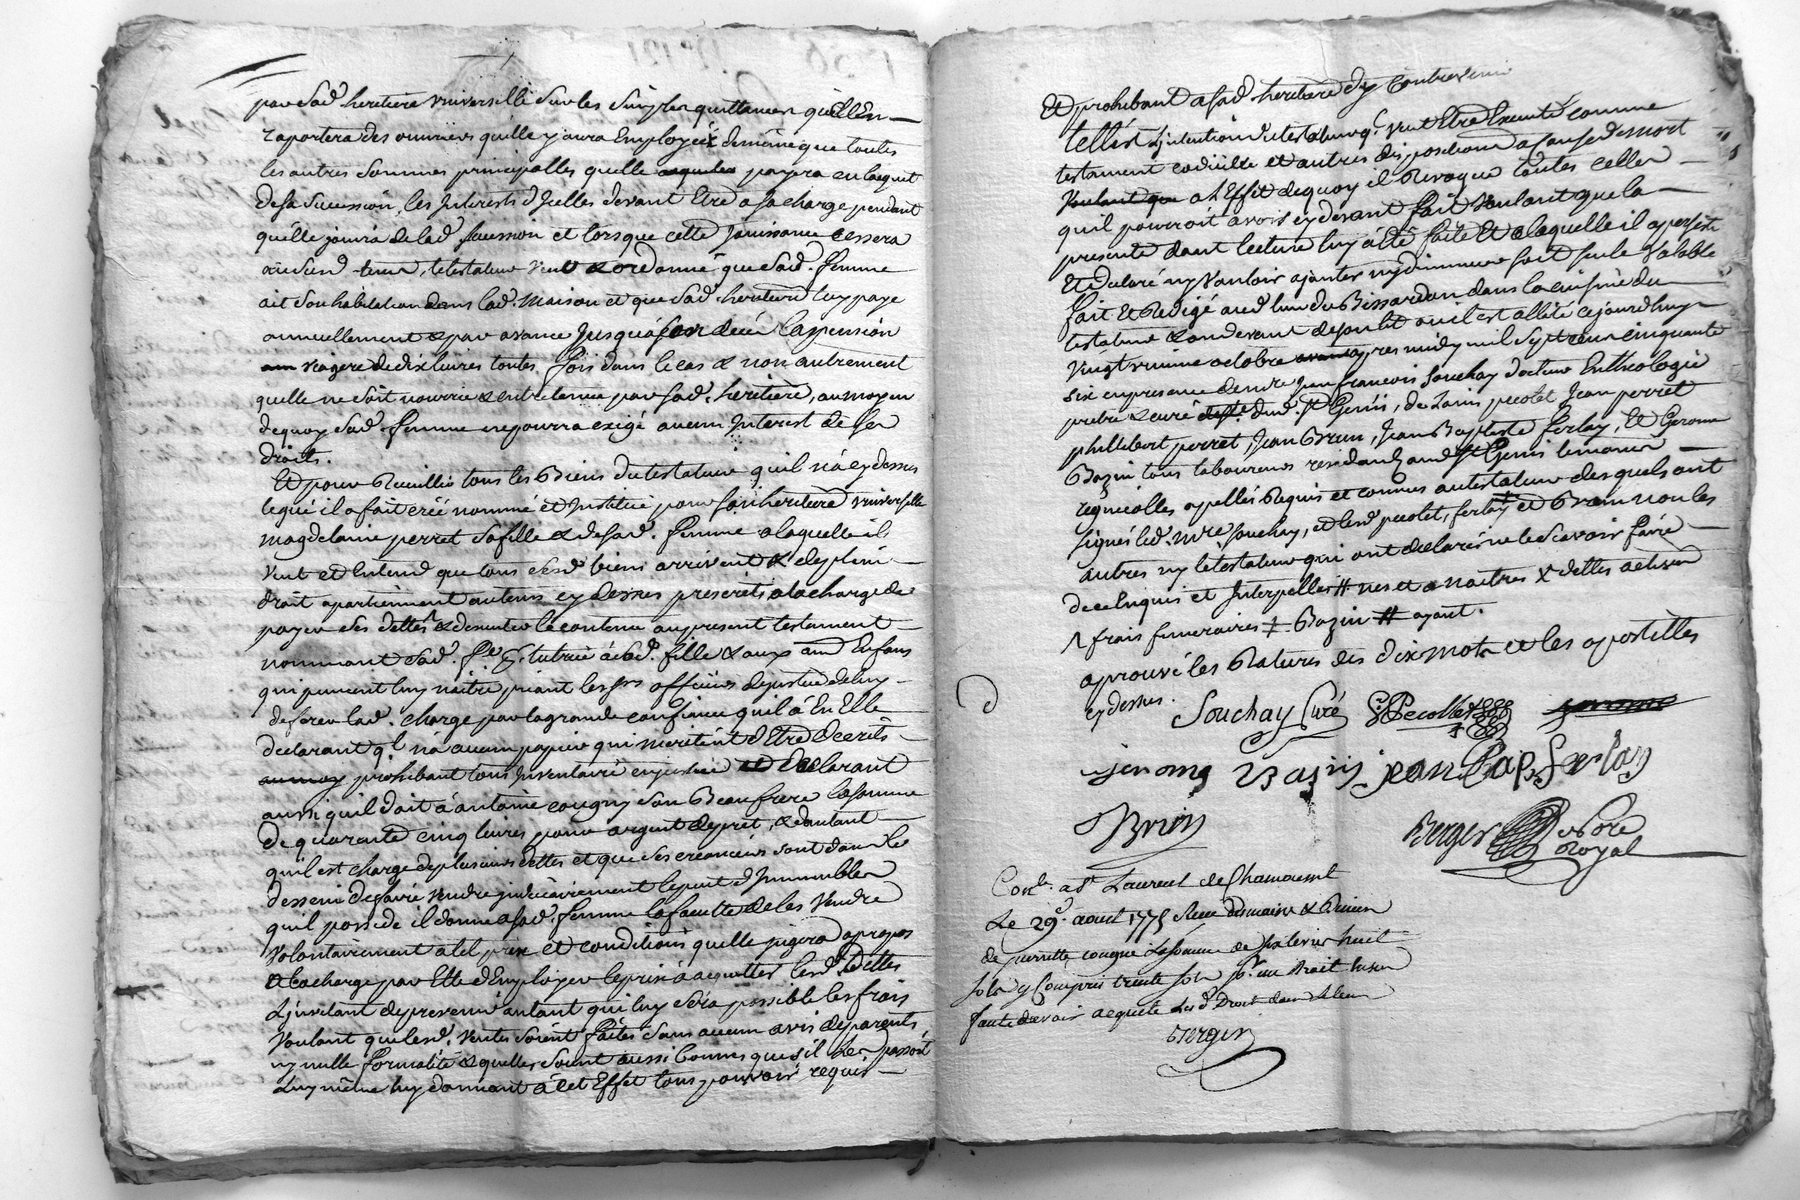 par sad. heritiere universelle sur les simples quittances quelle en
raportera des ouvriers quelle y aura Employéz de même que toutes
les autres sommes principalles quelle payera en laquit
de sa sucession, les Interests d'Icelles devant Etre a sa charge pendant
quelle jouira de lad. sucession et lorsque cette Jouissance cessera
le testateur veut & ordonne que sad. femme
ait son habitation dans lad. maison et que sad. heritiere luy paye
annuellement & par avance Jusqu'a son decés la pension
viagere de dix livres toutes fois dans le cas & non autrement
quelle ne soit nourrie & entretenue par sad. heritiere, au moyen
de quoy sad. femme ne pourra exigé aucun Interest de ses
droits.
Et pour Recuillir tous les Biens du testateur qu'il n'a cy dessus
legué il a fait créé nommé et Institué pour son heritiere universelle
magdelaine perret sa fille & de sad. femme a laquelle il
veut et Entend que tous sesd. biens arrivent & de plein
droit apartiennent au tems cy dessus prescrit a la charge de
payer ses dettes & d'executer le contenu au present testament
nommant sad. fe. tutrice a sad. fille & aux Enfans
qui peuvent luy naitre priant les srs officiers de justice de luy
deferer lad. charge par la grande confiance quil a En Elle
declarant ql n'a aucun papier qui meritent d'Etre decrits
prohibant tous Inventaire en justice declarant
aussi quil doit à antoine cougny son Beaufrere la somme
de quarante cinq livres pour argent de pret, & d'autant
quil est chargé de plusieurs dettes et que ses creanciers sont dans le
dessein de faire vendre judiciairement le peut d'Immeubles
quil possede il donne a sad. femme la faculté de les vendre
volontairement a tel prix et conditions quelle jugera apropos
a la charge par Elle d'Employer le prix a aquitter lesd. dettes
L'invitant de prevenir autant qui luy sera possible les frais
voulant que lesd. ventes soient faites sans aucun avis de parents,
ny nulle formalité & quelles soient aussi bonnes que s'il les passoit
Luy même luy donnant à cet Effet tous pouvoir requis
Et prohibant a sad. heritiere d'y contrevenir
telle est l'intention du testateur q. veut Etre Executé comme
testament codicille et autres disposition a cause de mort
voulant que a l'Effet de quoy il Revoque toutes celles
quil pourroit avoir cy devant fait voulant que la
presente dont lecture luy a été faite Et a laquelle il a persisté
Et declaré ny vouloir ajouter ny diminuer soit seule valable
fait Et Redigé aud. lieu du Bissardon dans la cuisine du
testateur & au devant de son lit ou il est allité ce jourd'huy
vingt neuvieme octobre apres midy mil sept cens cinquante
six en presence de mre Jean francois Souchay docteur En theologie
pretre & curé dud. st Genis, de Louis pecolet Jean perret
philibert perret, Jean Brun, Jean Baptiste ferlay, Et Gerome
Bazin tous laboureurs residants aud. st Genis temoins
requis et connus au testateur desquels ont
signés led. mre Souchay, et lesd. pecolet, ferlay et Brun non les
autres ny le testateur qui ont declarés ne le scavoir faire
de ce Enquis et Interpellés # nés et a naitres x dettes actives
frais funeraires ‡ Bazin # ayant.
aprouvé les Ratures des dix mots et les apostilles
cy dessus.
Souchay Curé Pecollet
jerome Basin jean Bap. ferlay
Brun
Berger No.re Royal
Con.lé a St Laurent de Chamousset
Le 29e. aout 1775
de pierrette cougne La somme de six livres huit
sols y Compris trente sols
faute d'avoir aequité
Berger